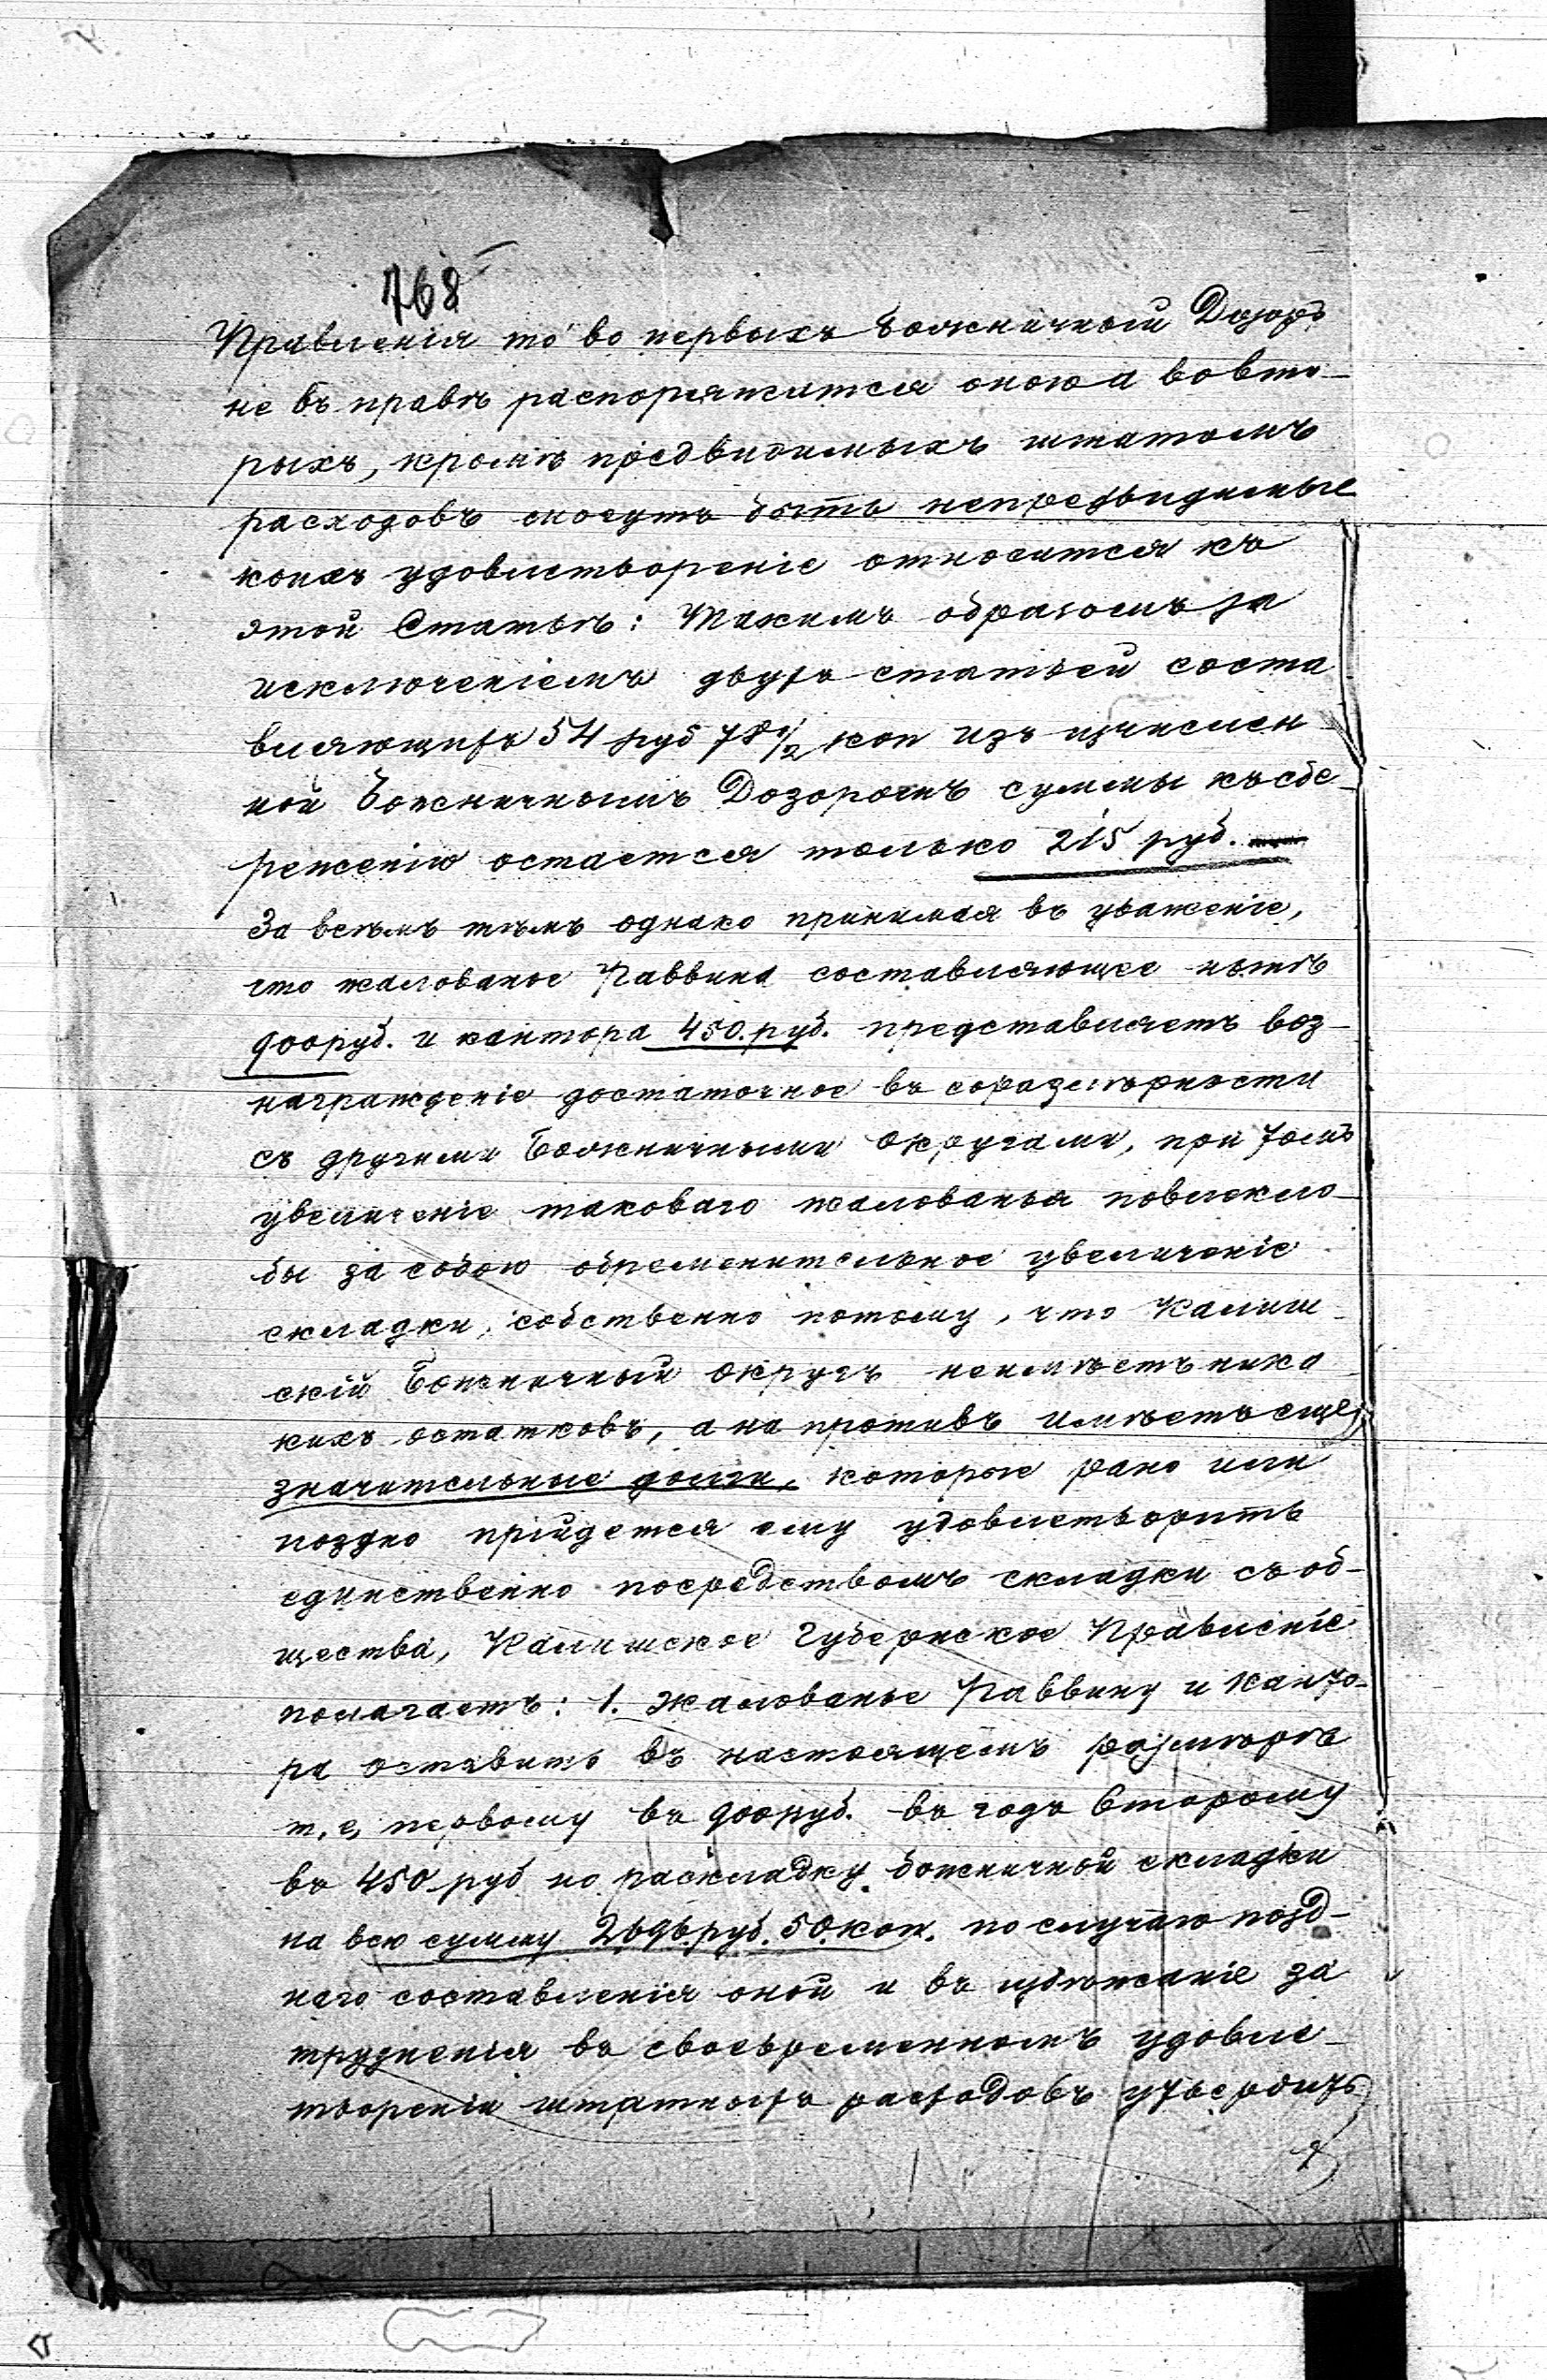 768
Правленія то во первыхъ Божничный Дозоръ
не въ правѣ распоряжатся оною а вовто-
рыхъ, кромѣ предвидимыхъ штатомъ
расходовъ могутъ быть непредвидимые
коихъ удовлетвореніе относится къ
этой Статьѣ: Такимъ образомъ за
исключеніемъ двухъ статьей соста
вляющихъ 54 руб 78 1/2 коп изъ изчислен
ной Божничнымъ Дозоромъ суммы къ сбе-
реженію остается только 215 руб.
За всѣмъ тѣмъ однако принимая въ уваженіе,
что жалованое Раввина составляющее нынѣ
900 руб. и кантора 450. руб. представляетъ воз-
награжденіе достаточное въ соразмѣрности
съ другими Божничными Округами, при томъ
увеличеніе таковаго жалованья повлекло-
бы за собою обременительное увеличеніе
складки, собственно потому, что Калиш-
скій Божничный Округъ неимѣетъ ника
кихъ остатковъ, а на противъ имѣетъ еще
значительные долги, которые рано или
поздно прійдется ему удовлетворить
единственно посредствомъ складки съ об-
щества, Калишское Губернское Правленіе
полагаетъ: 1. жалованье Раввину и Канто-
ра оставить въ настоящемъ размѣрѣ
т. е. первому въ 900 руб. въ годъ второму
въ 450 руб но раскладку божничной складки
на всю сумму 2696 руб. 50. коп. по случаю позд-
наго составленія оной и въ избѣжаніе за
трудненія въ своевременномъ удовле-
твореніи штатныхъ расходовъ утвердить